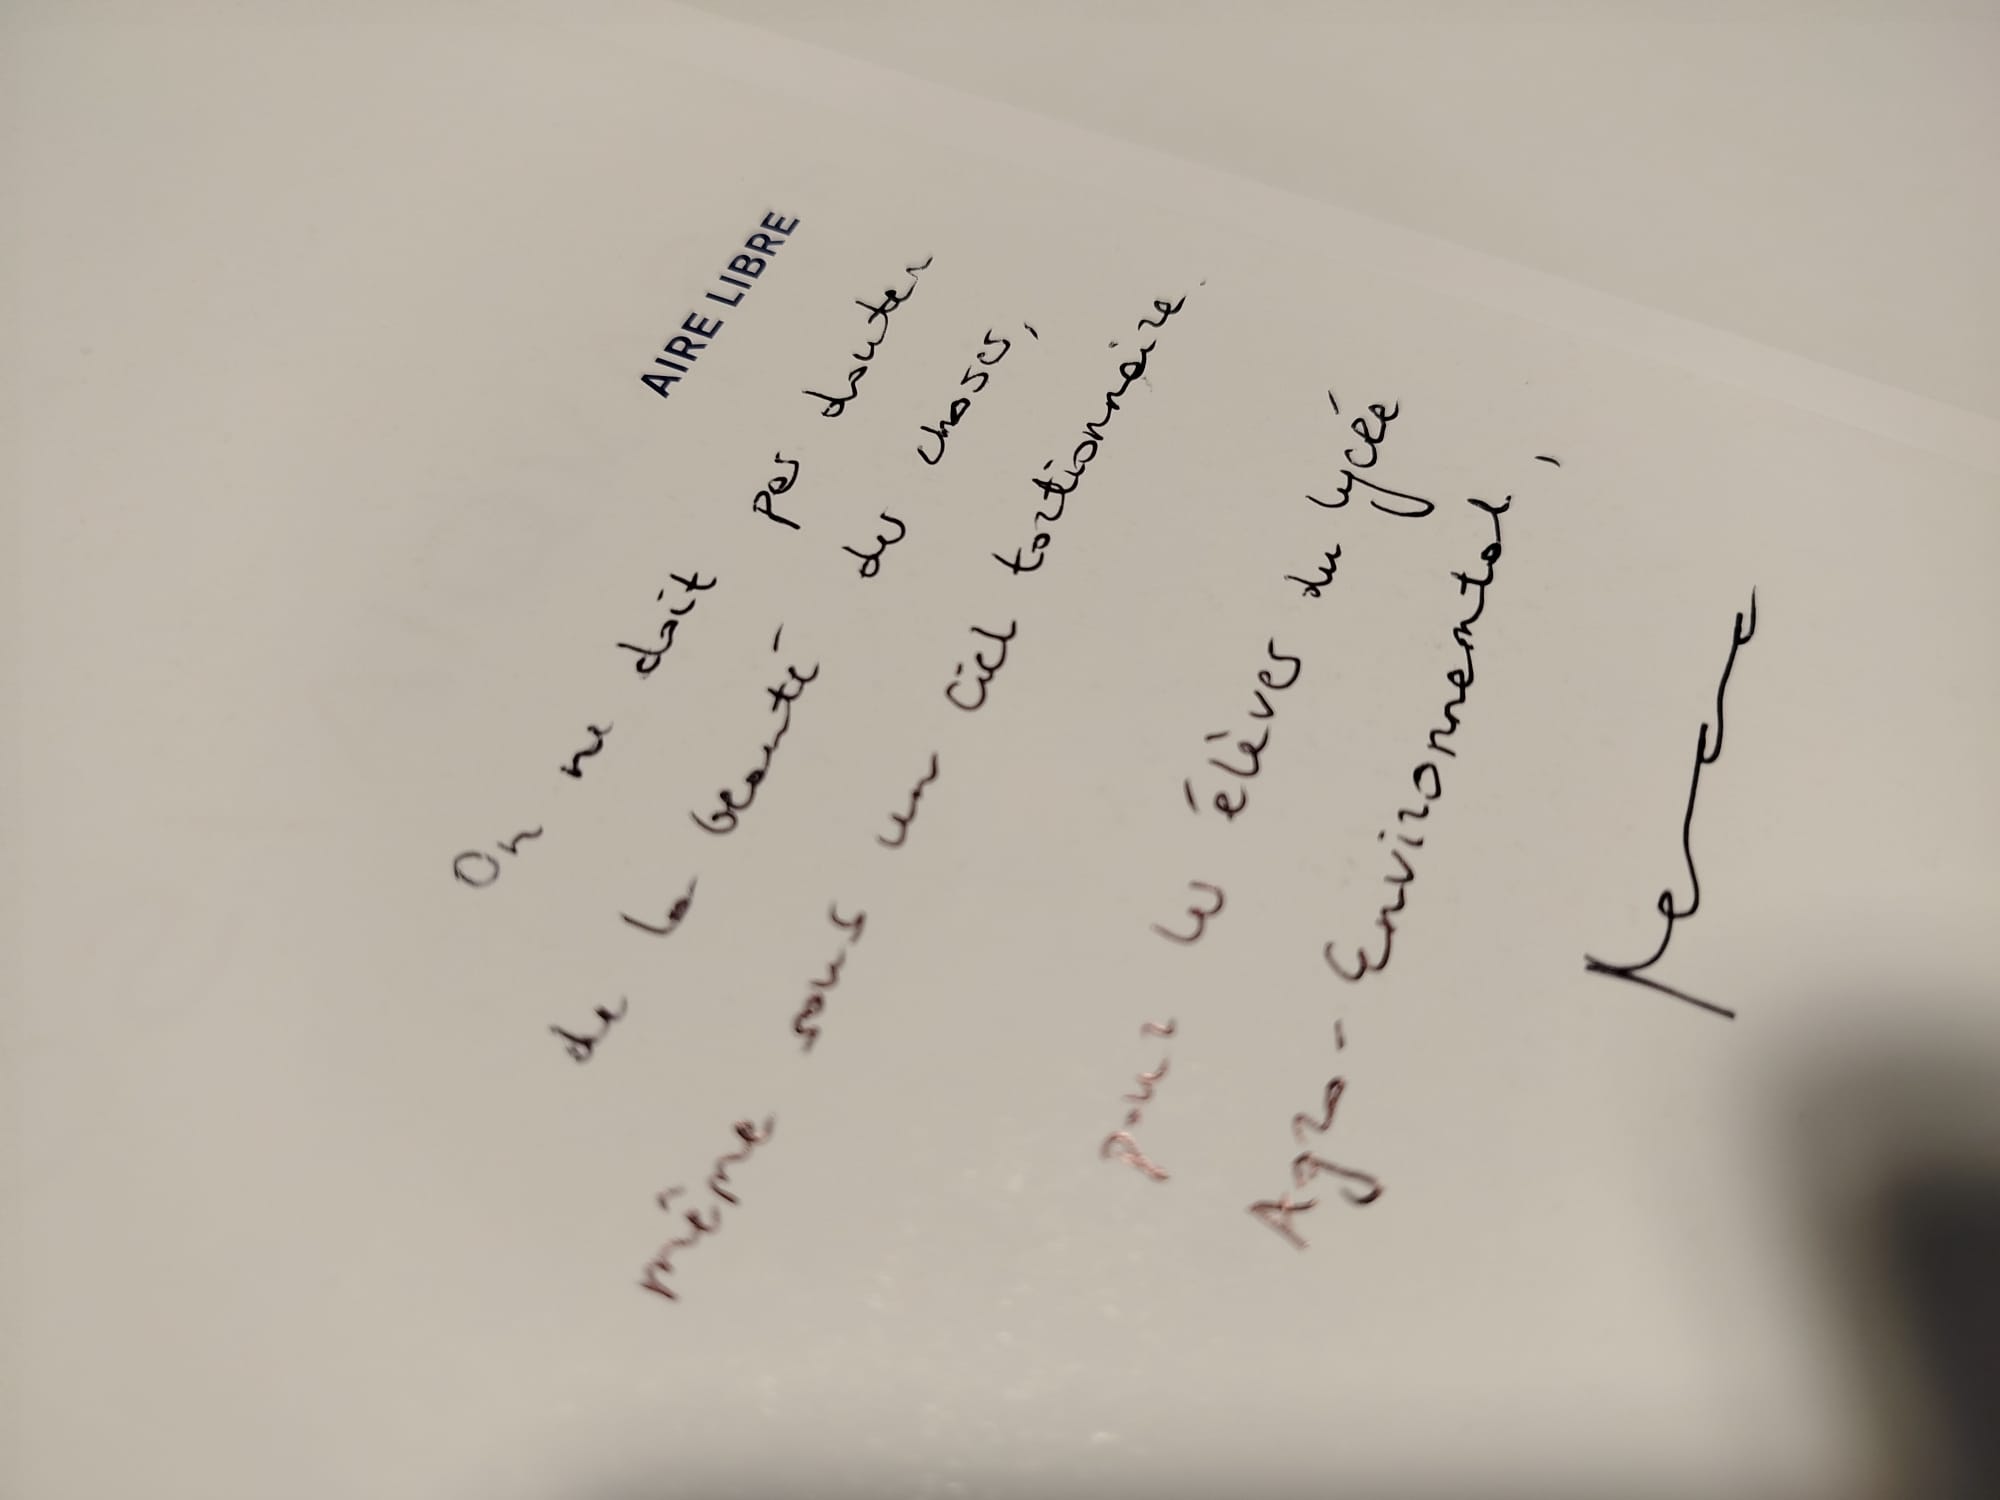 AIRE LIBRE
On ne doit pas douter
de la beauté des choses,
même sous un ciel tortionnaire.
pour les élèves du lycée
Agro-Environnemental,